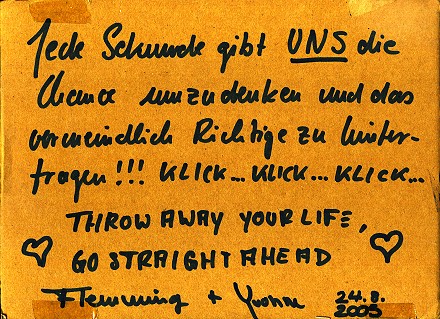 Jede Sekunde gibt UNS die
Chance umzudenken und das
vermeindlich Richtige zu hinter-
fragen!!! KLICK... KLICK... KLICK...
THROW AWAY YOUR LIFE,
GO STRAIGHT AHEAD
Flemming + Yvonne 24.8.
2005